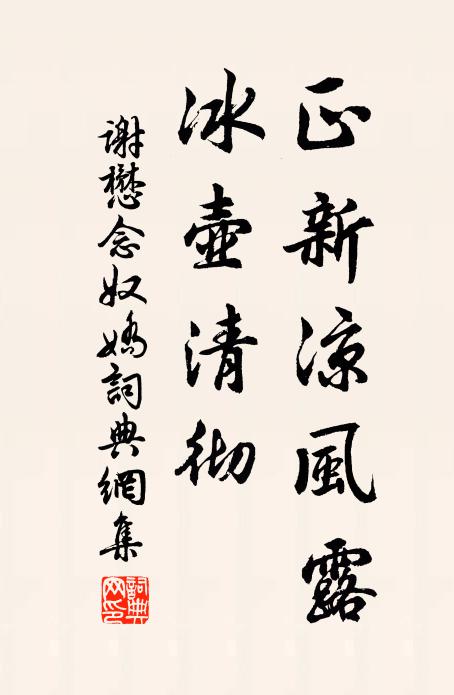 正新凉風露
冰壺清彻
謝懋念奴嬌詞典網集
詞典网印